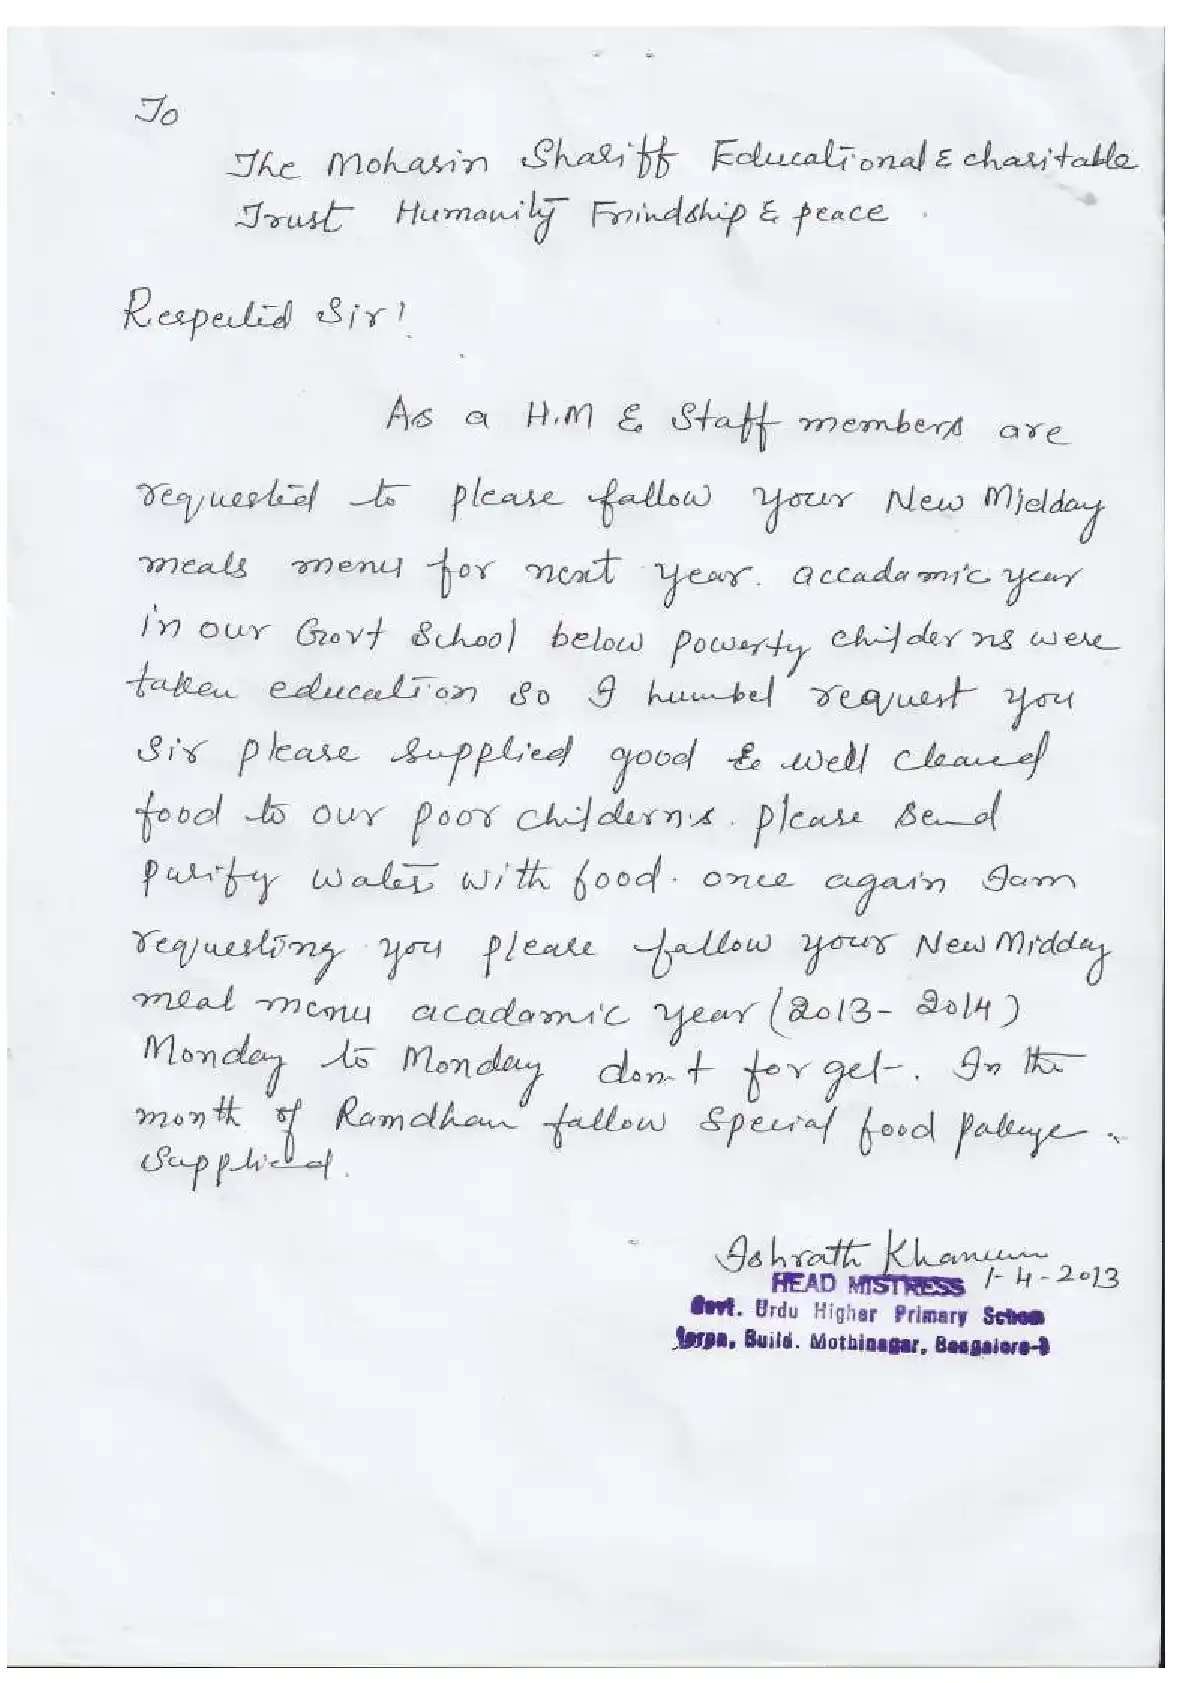 To
The Mohasin Shariff Educational & charitable
Trust Humanity Frindship & peace.
Respected Sir!
As a H.M & Staff members are
requested to please fallow your New Midday
meals menu for next year. accadamic year
in our Govt School below powerty childerns were
taken education so I humbel request you
Sir please supplied good & well cleaned
food to our poor childerns. please send
purify water with food. once again Iam
requesting you please fallow your New Midday
meal menu acadamic year (2013-2014)
Monday to Monday don't forget-. In the
month of Ramdhan fallow special food
supplied.
Ishrath Khanum
HEAD MISTRESS 1-4-2013
Govt. Urdu Higher Primary School
Build. Mothinagar, Bangalore-